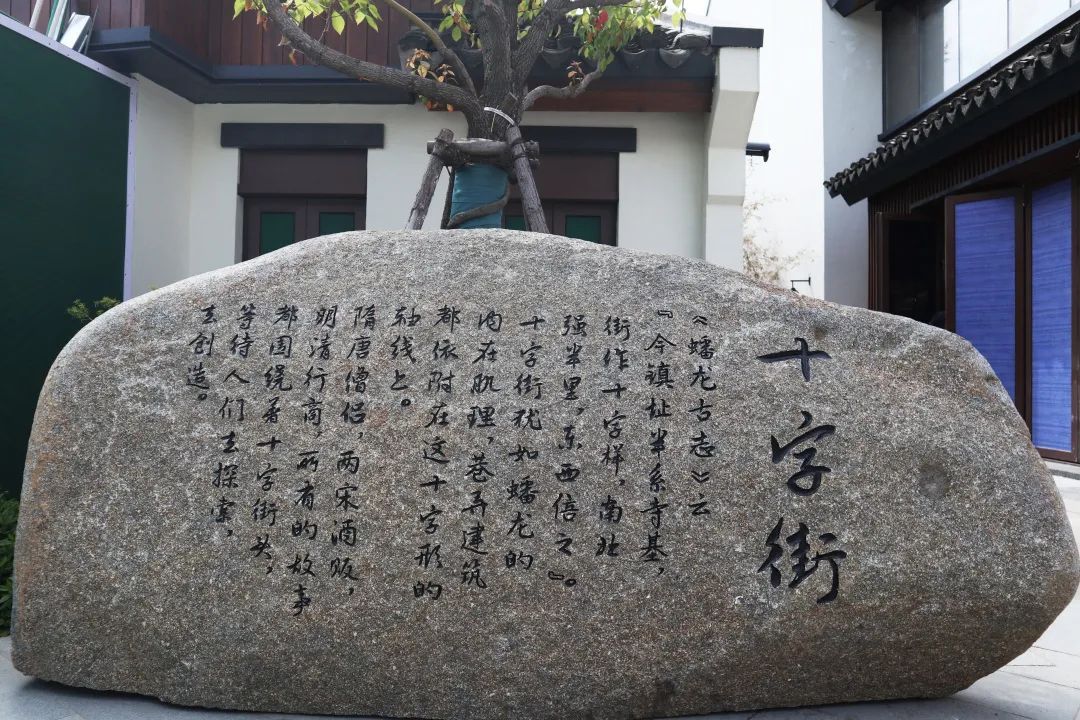 十字街
《蟠龙古志》云
『今镇址半系寺基，
街作十字样，南北
强半里，东西倍之』。
十字街犹如蟠龙的
内在肌理，巷弄建筑
都依附在这十字形的
轴线上。
隋唐僧侣，两宋酒贩，
明清行商，所有的故事
都围绕着十字街头，
等待人们去探索，
去创造。